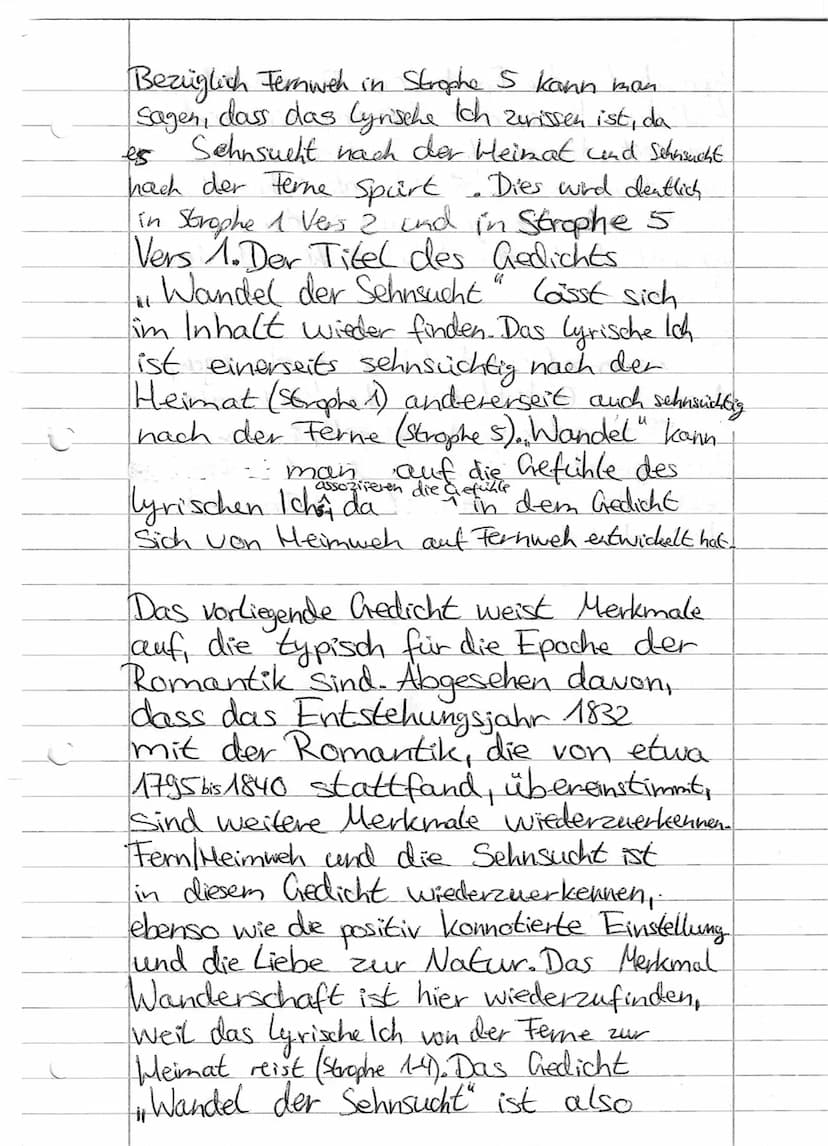 Bezüglich Fernweh in Strophe 5 kann man
sagen, dass das lyrische Ich zurissen ist, da
es Sehnsucht nach der Heimat und Sehnsucht
nach der Ferne spürt. Dies wird deutlich
in Strophe 1 Vers 2 und in Strophe 5
Vers 1. Der Titel des Gedichts
„Wandel der Sehnsucht" lässt sich
im Inhalt wieder finden. Das lyrische Ich
ist einerseits sehnsüchtig nach der
Heimat (Strophe 1) andererseit auch sehnsüchtig
nach der Ferne (Strophe 5). „Wandel" kann
man auf die Gefühle des
assoziieren die Gefühle
lyrischen Ichs, da in dem Gedicht
sich von Heimweh auf Fernweh entwickelt hat.
Das vorliegende Gedicht weist Merkmale
auf, die typisch für die Epoche der
Romantik sind. Abgesehen davon,
dass das Entstehungsjahr 1832
mit der Romantik, die von etwa
1795 bis 1840 stattfand, übereinstimmt,
sind weitere Merkmale wiederzuerkennen.
Fern/Heimweh und die Sehnsucht ist
in diesem Gedicht wiederzuerkennen,
ebenso wie die positiv konnotierte Einstellung
und die Liebe zur Natur. Das Merkmal
Wanderschaft ist hier wiederzufinden,
weil das lyrische Ich von der Ferne zur
Heimat reist (Strophe 1-4). Das Gedicht
„Wandel der Sehnsucht" ist also